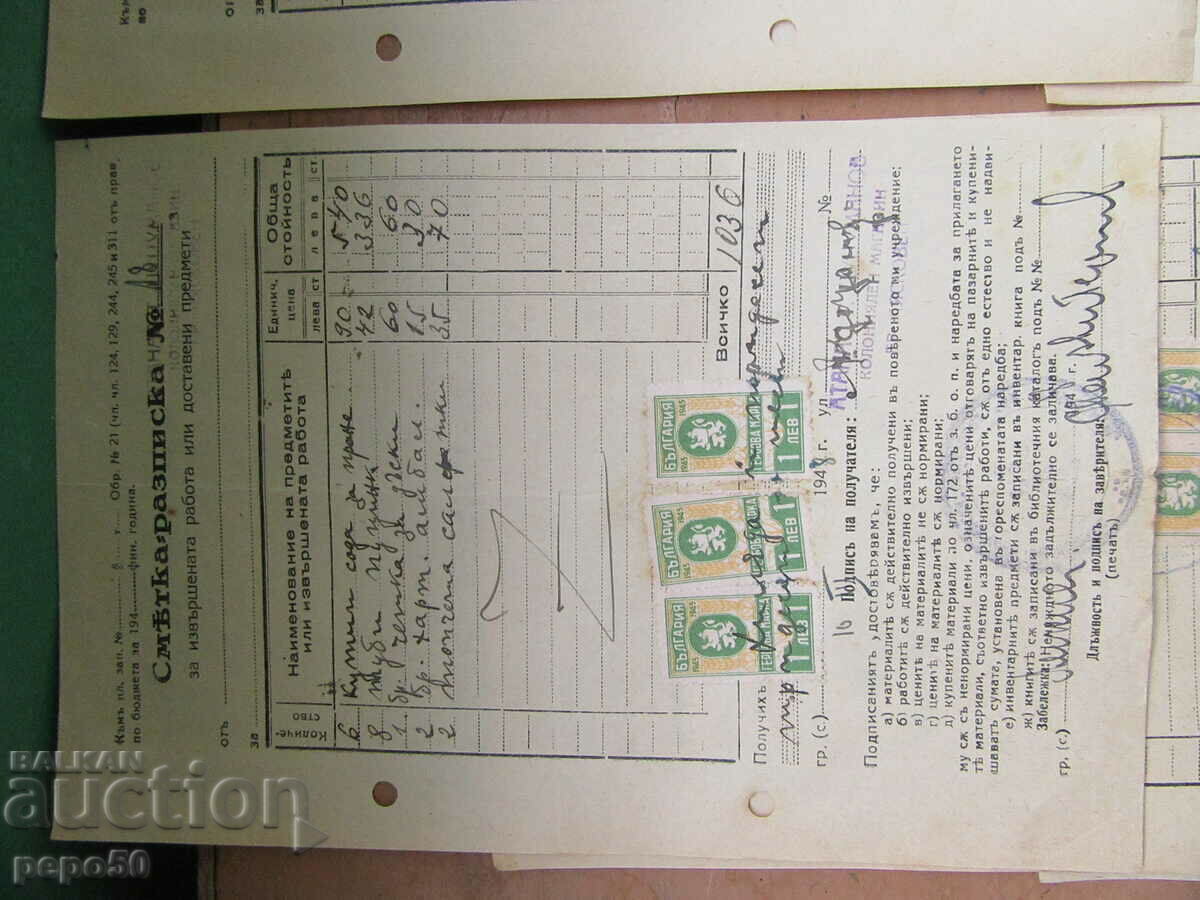 Къмъ пл. зап. № в. у. Обр. № 21 (чл. чл. 124, 129, 244, 245 и 311 отъ прав.
по бюджета за 194 фин. година.
Смѣтка-разписка № 18
за извършената работа или доставени предмети
отъ
за
Количество
Наименование на предметитѣ или извършената работа
Единич. цена
Обща стойность
лева ст
лева ст
6 Кутии сода за пране 90 540
8 туби 42 336
1 бр. четка за дъски 60 60
2 бр. харт. амбал. 15 30
2 35 70
Всичко 1036
БЪЛГАРИЯ
1945
1 ЛЕВ
БЪЛГАРИЯ
1945
1 ЛЕВ
БЪЛГАРИЯ
1945
ГЕРБОВА МАРКА
1 ЛЕВ
Получихъ хиляда и тридесет
тридесет и шест
гр. (с.) 1948 г. ул. №
Подписъ на получателя:
КОЛОНИЯЛЕН МАГАЗИН
Подписаниятъ, удостовѣрявамъ, че:
а) материалитѣ сѫ действително получени въ повѣреното ми учреждение;
б) работитѣ сѫ действително извършени;
в) ценитѣ на материалитѣ не сѫ нормирани;
г) ценитѣ на материалитѣ сѫ нормирани;
д) купенитѣ материали по чл. 172 отъ з. б. о. п. и наредбата за прилагането
му сѫ съ ненормирани цени, означенитѣ цени отговарятъ на пазарнитѣ и купени-
тѣ материали, съответно извършенитѣ работи, сѫ отъ едно естество и не надви-
шаватъ сумата, установена въ гореспоменатата наредба;
е) инвентарнитѣ предмети сѫ записани въ инвентар. книга подъ №
ж) книгитѣ сѫ записани въ библиотечния каталогъ подъ №
Забележка: Ненуждното задължително се заличава.
гр. (с.) 194 г.
Длъжность и подписъ на завѣрителя:
(печатъ)
BALKAN
auction
pepo50